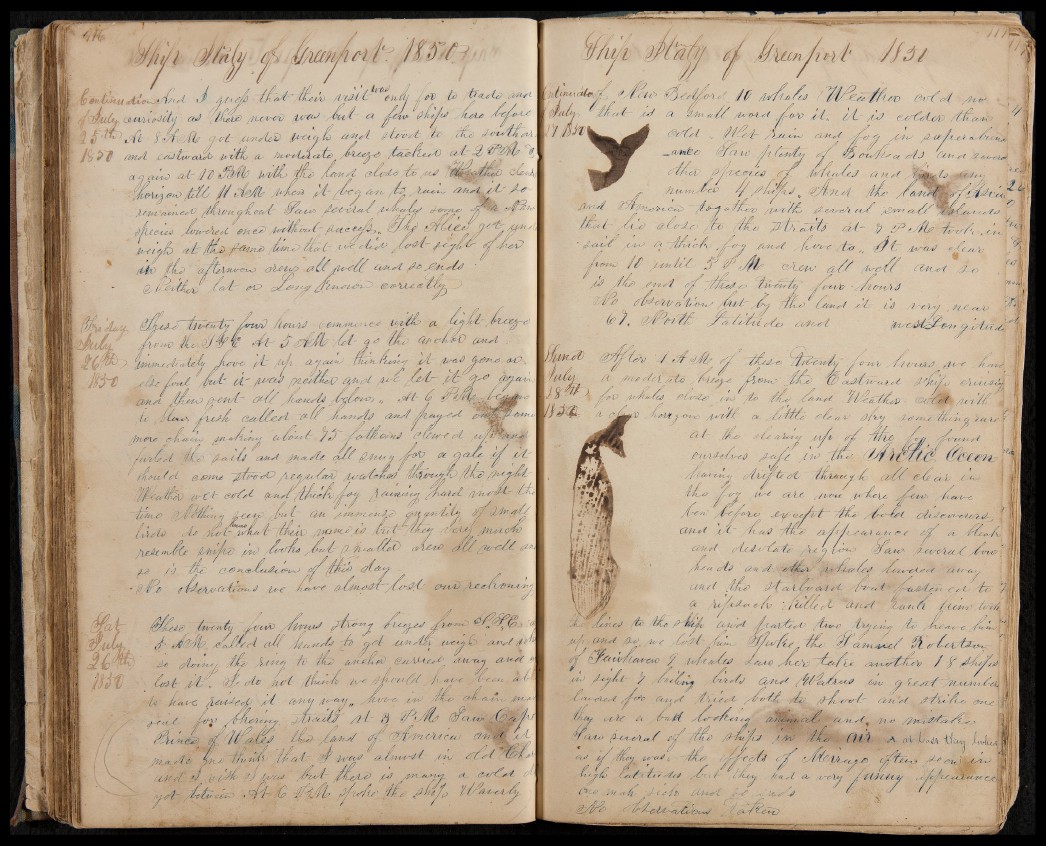 116
Ship Italy of Greenport 1850
Continuation of July 25th 1850
And I guess that their visit was only for to trade and
curiosity as there never was but a few ships here before
At 8 AM got under weigh and stood to the southward
and eastward with a moderate breeze tacked at 2 PM &
again at 10 PM with the land close to us Weather clear
horizon till 11 AM when it began to rain and it so
remained throughout Saw several whales some of a New
species lowered once without success, The Alice got under
weigh at the same time that we did lost sight of her
in the afternoon crew all well and so ends
Neither Lat or Long known correctly
Friday July 26th 1850
These twenty four hours commence with a light breeze
from the At 5 AM let go the anchor and
immediately hove it up again thinking it was gone or
else foul but it was neither and we let it go again
and then sent all hands below, At 6 PM began
to blow fresh called all hands and payed out some
more chain making about 75 fathoms clewed up and
furled the sails and made all snug for a gale if it
should come stood regular watches through the night
Weather wet cold and thick fog raining hard most the
time Nothing seen but an immense quantity of small
birds do not know what their name is but they very much
resemble snipe in looks but smaller crew all well and
so is the conclusion of this day
No observations we have almost lost our reckoning
Sat July 26th 1850
These twenty four hours strong breezes from
5 AM called all hands to get under weigh and in
so doing the ring to the anchor carried away and we
lost it. I do not think we should have been able
to have raised it any way, hove in the chain made
sail for Bhering straits at 3 PM Saw Cape
Prince of Wales the land of America and it
made me think that I was almost in old
and I wish I was but there is many a cold
yet between At 6 PM spoke the ship Waverly
117
Ship Italy of Greenport 1850
Continuation of July 27 1850
of New Bedford 10 whales Weather cold no
that is a small word for it. it is colder than
cold Wet rain and fog in superabun
ance Saw plenty of Bowheads and several
other species of whales and birds any
number 4 ships. And the land of Asia
and America together with several small islands
that lie close to the straits at 3 PM took in
sail in a thick fog and hove to, It was clear
from 10 until 5 PM crew all well and so
is the end of these twenty four hours
No observation but by the land it is very near
67. North Latitude and west Longitude
Sund July 28th 1850
After 1 AM of these twenty four hours we have
a moderate breeze from the Eastward ship cruising
for whales close in to the land Weather cold with
a clear horizon with a little clear sky something rare
at the clearing up of the fog found
ourselves safe in the Arctic Ocean
having drifted through all clear in
the fog we are now where few have
been before except the bold discoverers,
and it has the appearance of a bleak
and desolate region Saw several bow
heads and other whales lowered away
and the starboard boat fastened to
a ripsack killed and sunk him took
the lines to the ship and parted two trying to heave him
up and so we lost him Spoke the Samuel Robertson
of Fairhaven 9 whales saw her take another 18 ships
in sight 7 boiling birds and Walrus in great numbers
lowered for and tried both to shoot and strike one
they are a bad looking animal and no mistake
Saw several of the ships in the air or at least they looked
as if they was. the effects of Merrage often seen in
high latitudes but they had a very funny appearance
one man sick and so ends
No Observations Taken